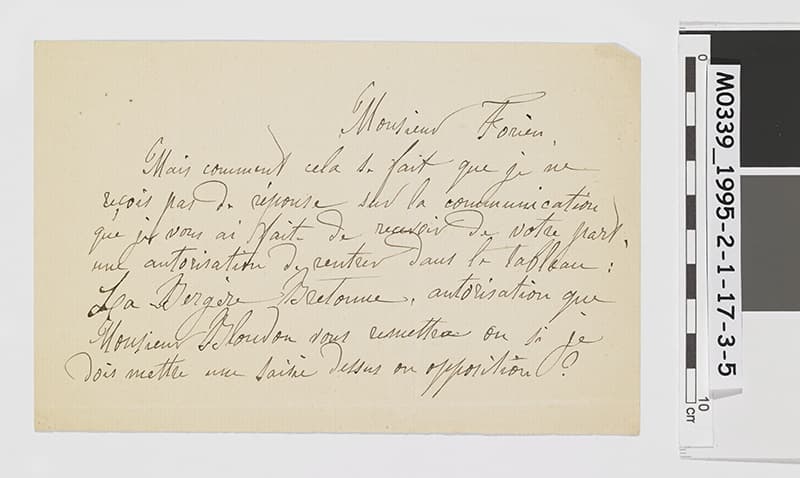 Monsieur Forien,
Mais comment cela se fait que je ne
reçois pas de réponse sur la communication
que je vous ai faite de recevoir de votre part,
une autorisation de rentrer dans le tableau :
La Bergère Bretonne, autorisation que
Monsieur Bloudon vous remettra ou si je
dois mettre une saisie dessus ou opposition ?
0
10
cm
M0339_1995-2-1-17-3-5